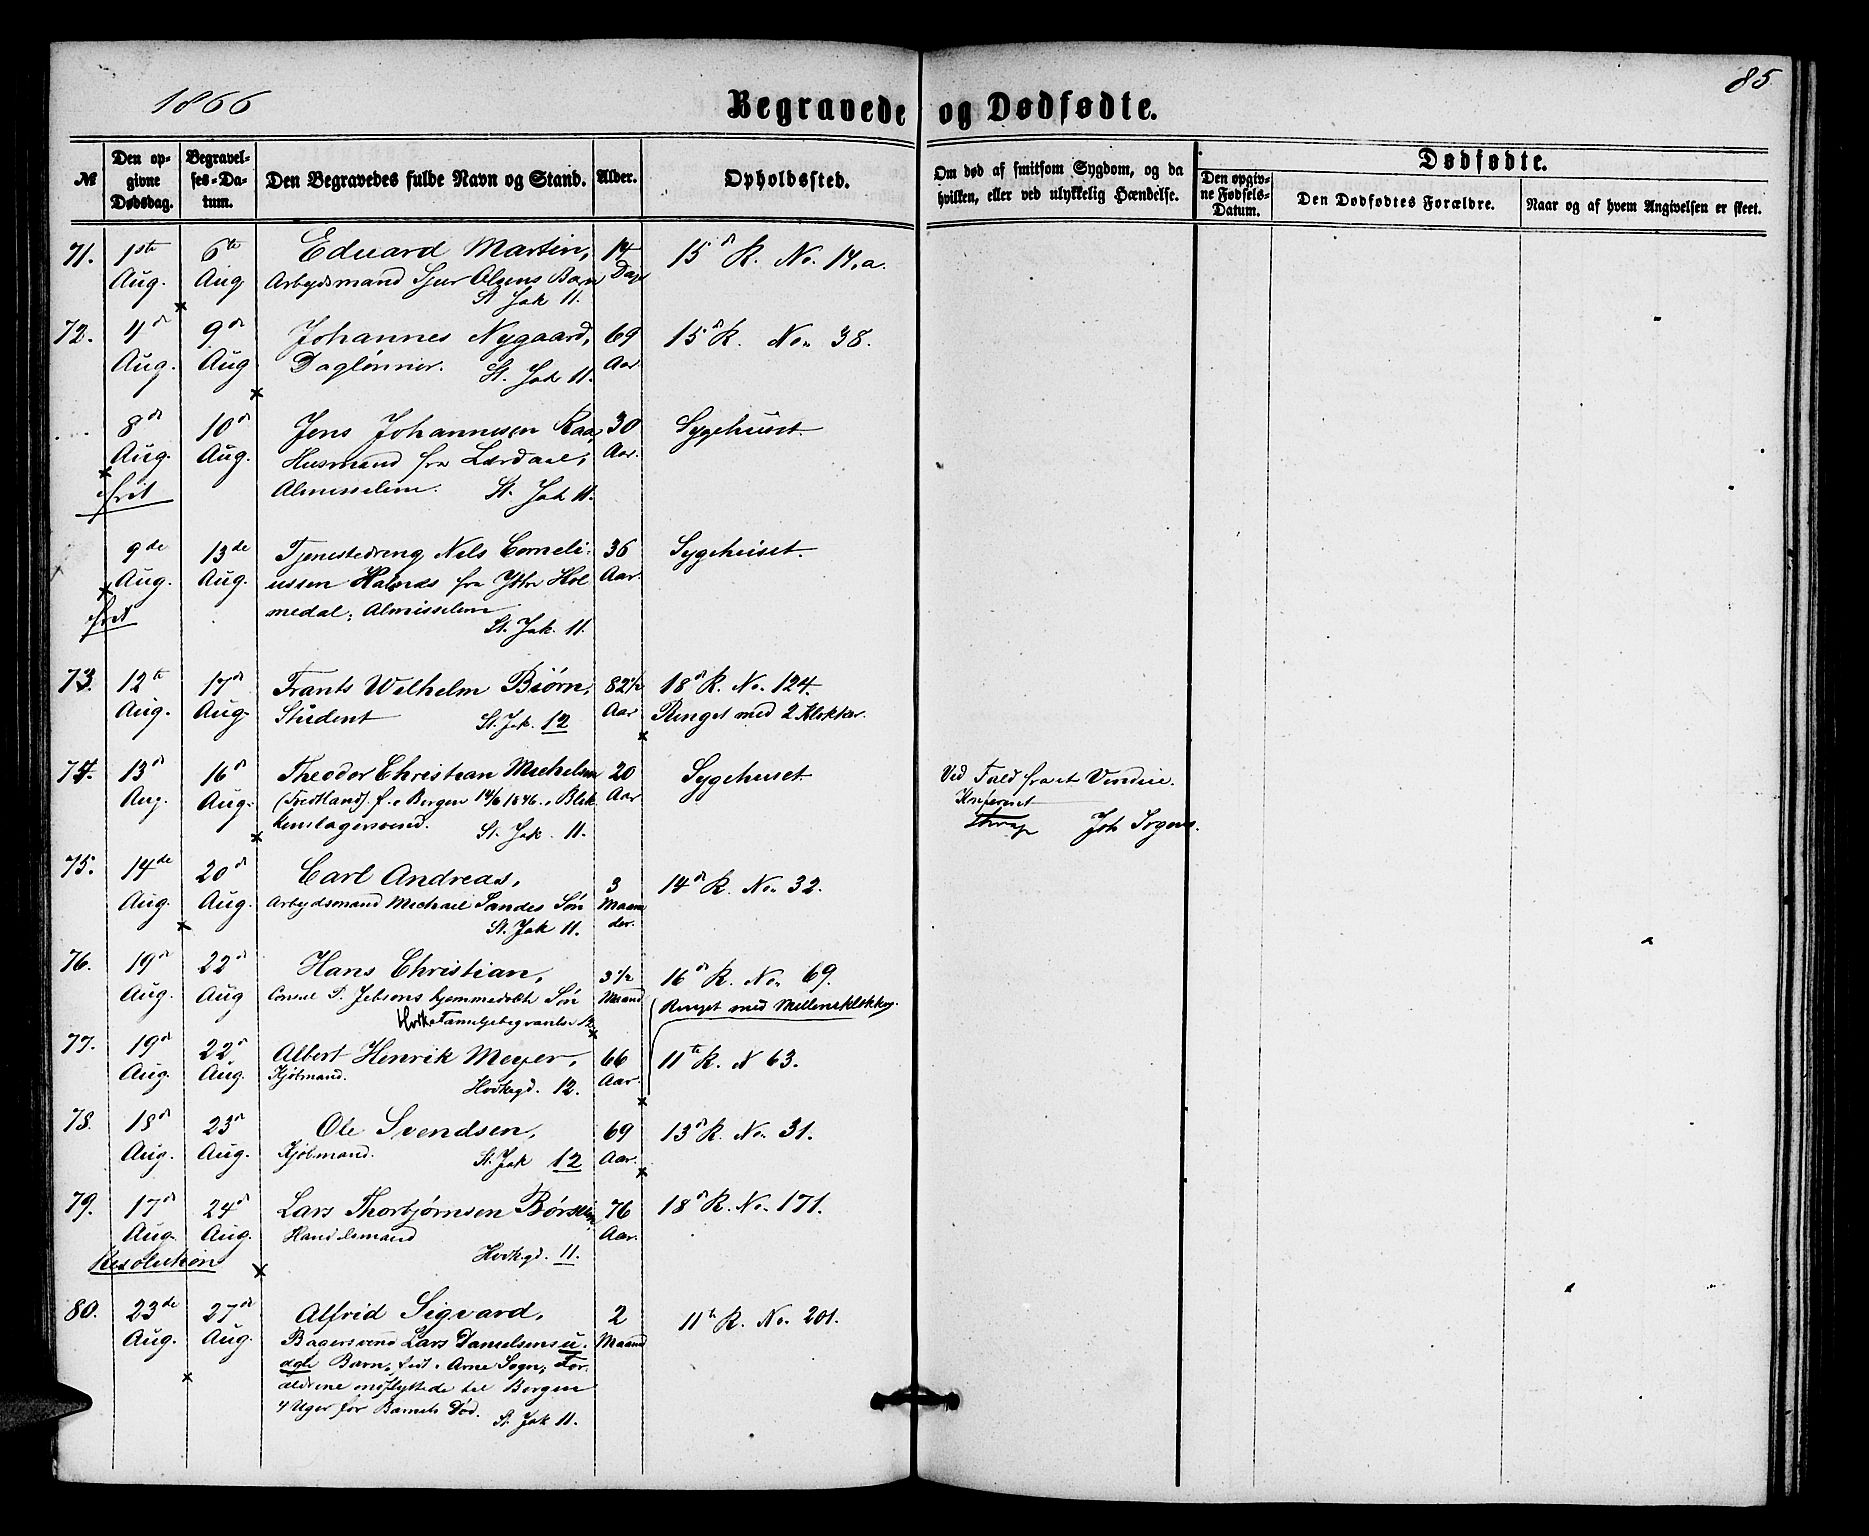 1866
Begravede og Dødfødte.
85
№
Den opgivne Dødsdag.
Begravelses-Datum.
Den Begravedes fulde Navn og Stand.
Alder.
Opholdssted.
Om død af smitsom Sygdom, og da hvilken, eller ved ulykkelig Hændelse.
Dødfødte.
Den opgivne Fødsels-Datum.
Den Dødfødtes Forældre.
Naar og af hvem Angivelsen er skeet.
71. 1ste 6te Eduard Martin, 14 15de R. No. 14.a.
Aug. Aug Arbeidsmand Sjur Olsens Barn Dage
St. Jak 11.
72. 4de 9de Johannes Nygaard, 69 15de R. No. 38.
Aug. Aug Daglønner. St. Jak 11. Aar
8de 10de Jens Johannesen 30 Sygehuset
Aug. Aug. Husmand fra Lærdal, Aar.
frit Almisselem. St. Jak 11.
9de 13de Tjenestedreng Nils Corneli- 36 Sygehuset
Aug. Aug. ussen fra Ytre Hol Aar.
frit medal, Almisselem
St. Jak. 11.
73. 12te 17de Frants Wilhelm Biørn, 82 1/2 18de R. No. 124.
Aug. Aug. Student St. Jak. 12 Aar Ringet med 2 Klokker.
74. 13de 16de Theodor Christian Michelsen 20 Sygehuset Ved Fald fra et Vindue.
Aug. Aug. (Tredtland) f. i Bergen 14/6 1846. Blik Aar Konfereret
kenslagersvend. St. Jak. 11. Joh
75. 14de 20de Carl Andreas, 3 14de R. No. 32.
Aug. Aug. Arbeidsmand Michael Sandes Søn Maane
St. Jak 11. der.
76. 19de 22de Hans Christian, 3 1/2 16de R. No. 69.
Aug. Aug Consul P. Jebsens hjemmedøbte Søn Maaned Ringet med Mellemklokken.
Familjebegravelse 12.
77. 19de 22de Albert Henrik Meyer, 66 11te R. N 63.
Aug. Aug. Kjøbmand. Hovkgd. 12. Aar.
78. 18de 23de Ole Svendsen, 69 13de R. No. 31.
Aug. Aug. Kjøbmand. St. Jak 12 Aar.
79. 17de 24de Lars Thorbjørnsen Børsheim 76 18de R. No. 171.
Aug. Aug. Handelsmand Aar.
Resolution Hovkgd. 11.
80. 23de 27de Alfrid Sigvard, 2 11te R. No. 201.
Aug. Aug. Bagersvend Lars Danielsens u- Maaned
ægte Barn, født i Arne Sogn; For
ældrene indflyttede til Bergen
4 Uger før Barnets Død. St. Jak 11.